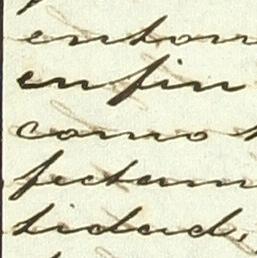 enton
enfin
como
fectam
tidad,